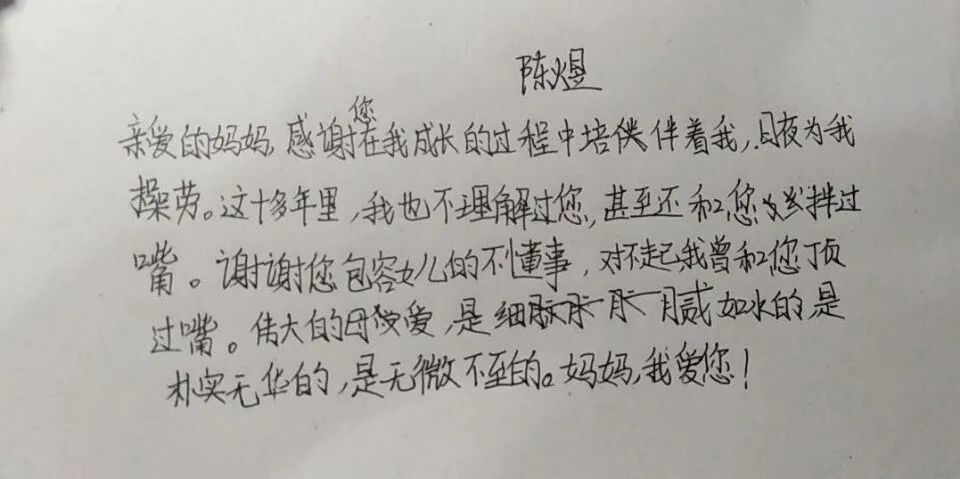 陈煜
亲爱的妈妈,感谢您在我成长的过程中培伴着我,日夜为我
操劳。这十多年里,我也不理解过您,甚至还和您拌过
嘴。谢谢您包容女儿的不懂事,对不起,我曾和您顶
过嘴。伟大的母爱,是细腻如水的,是
朴实无华的,是无微不至的。妈妈,我爱您!